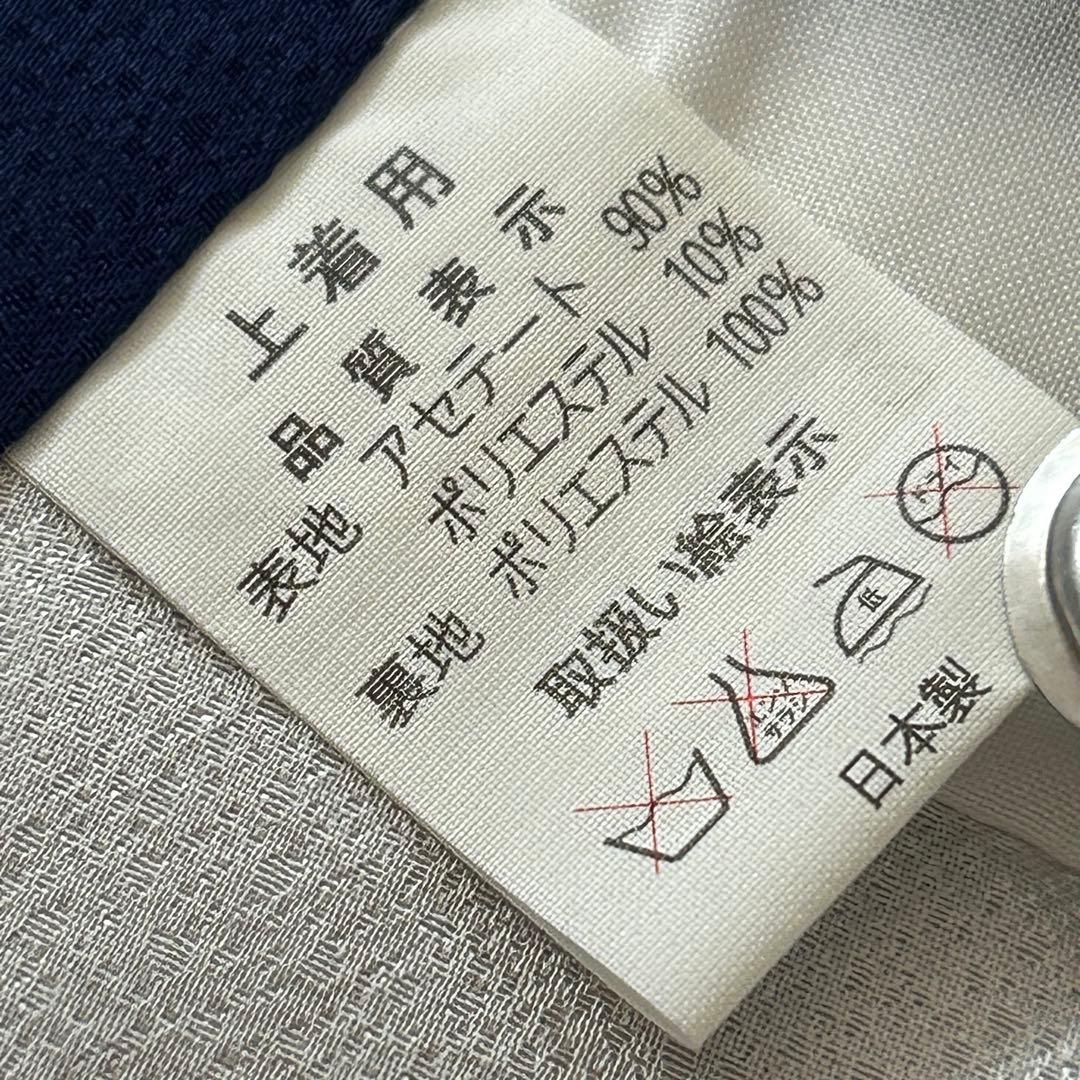 上着用
品質表示
表地 アセテート 90%
ポリエステル 10%
裏地 ポリエステル 100%
取扱い絵表示
エンソ
サラシ
低
ドライ
日本製